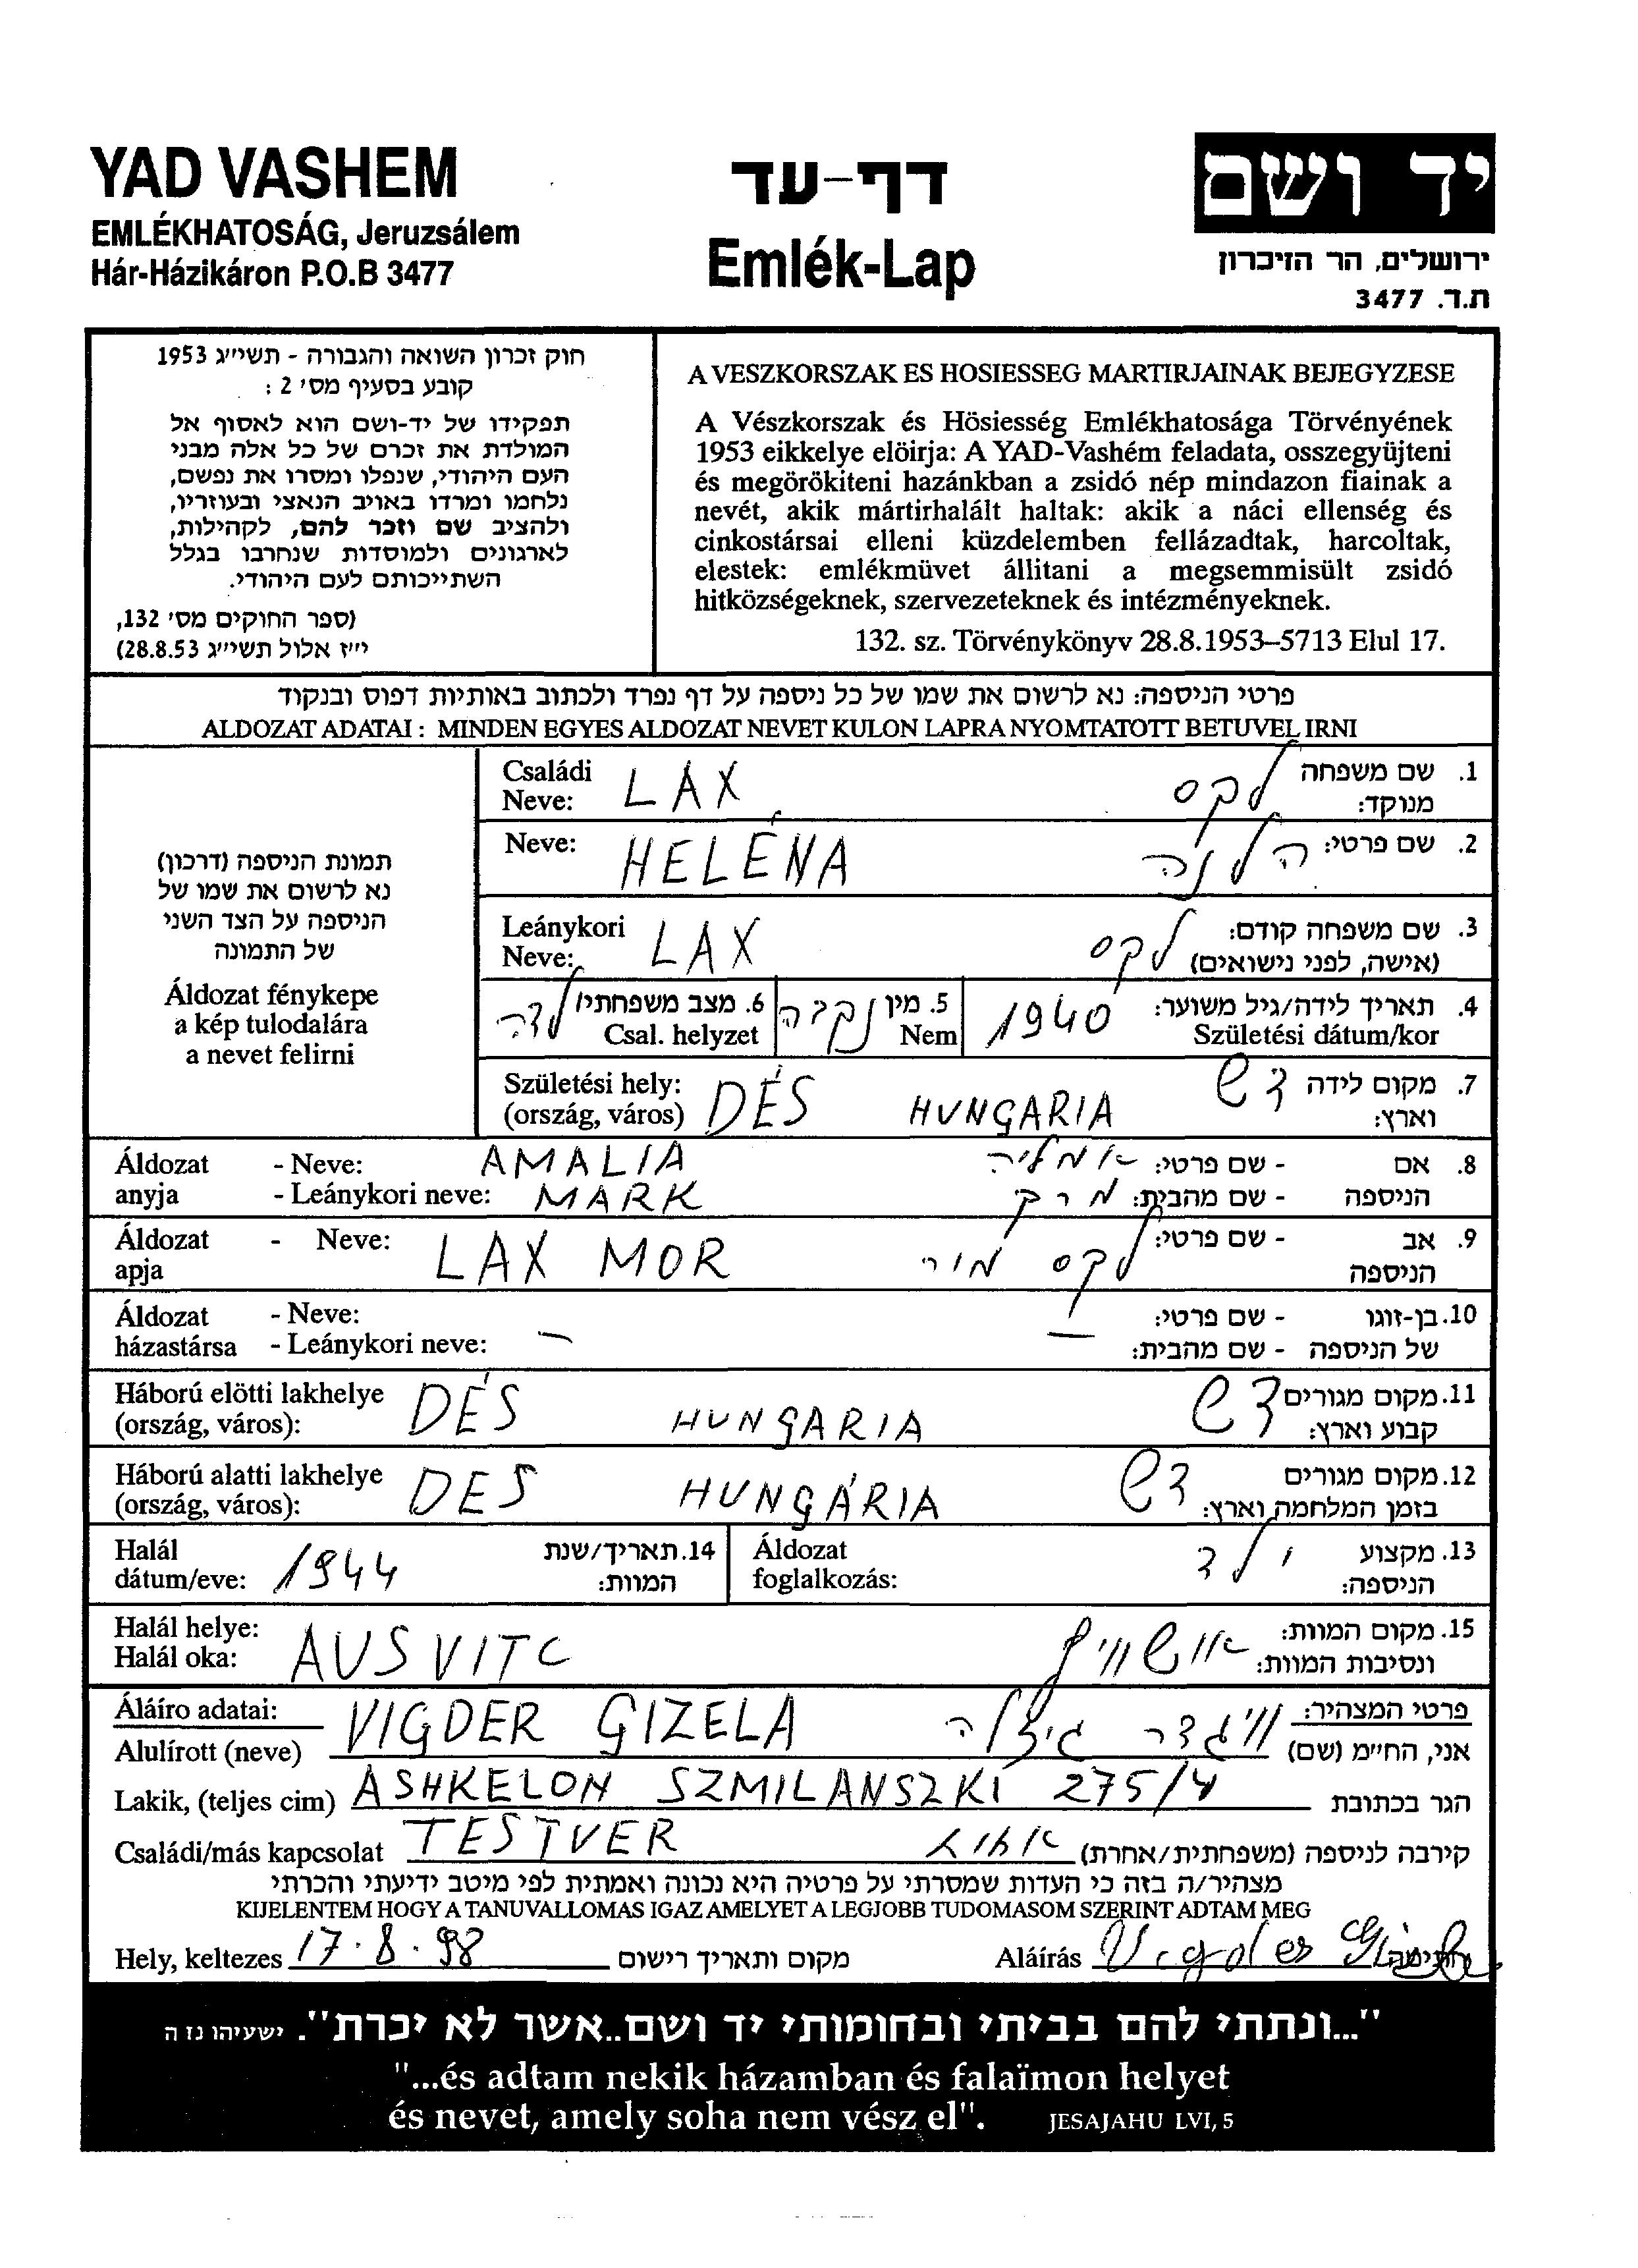 YAD VASHEM
EMLÉKHATOSÁG, Jeruzsálem
Hár-Házikáron P.O.B 3477
דף-עד
Emlék-Lap
יד ושם
ירושלים, הר הזיכרון
ת.ד. 3477
חוק זכרון השואה והגבורה - תשי״ג 1953
קובע בסעיף מס׳ 2 :
תפקידו של יד-ושם הוא לאסוף אל
המולדת את זכרם של כל אלה מבני
העם היהודי, שנפלו ומסרו את נפשם,
נלחמו ומרדו באויב הנאצי ובעוזריו,
ולהציב שם וזכר להם, לקהילות,
לארגונים ולמוסדות שנחרבו בגלל
השתייכותם לעם היהודי.
(ספר החוקים מס׳ 132,
י״ז אלול תשי״ג 28.8.53)
A VESZKORSZAK ES HOSIESSEG MARTIRJAINAK BEJEGYZESE
A Vészkorszak és Hösiesség Emlékhatosága Törvényének
1953 eikkelye elöirja: A YAD-Vashém feladata, osszegyüjteni
és megörökiteni hazánkban a zsidó nép mindazon fiainak a
nevét, akik mártirhalált haltak: akik a náci ellenség és
cinkostársai elleni küzdelemben fellázadtak, harcoltak,
elestek: emlékmüvet állitani a megsemmisült zsidó
hitközségeknek, szervezeteknek és intézményeknek.
132. sz. Törvénykönyv 28.8.1953–5713 Elul 17.
פרטי הניספה: נא לרשום את שמו של כל ניספה על דף נפרד ולכתוב באותיות דפוס ובנקוד
ALDOZAT ADATAI : MINDEN EGYES ALDOZAT NEVET KULON LAPRA NYOMTATOTT BETUVEL IRNI
תמונת הניספה (דרכון)
נא לרשום את שמו של
הניספה על הצד השני
של התמונה
Áldozat fénykepe
a kép tulodalára
a nevet felirni
Családi Neve: LAX לקס 1. שם משפחה מנוקד:
Neve: HELÉNA הלנה 2. שם פרטי:
Leánykori Neve: LAX לקס 3. שם משפחה קודם: (אישה, לפני נישואים)
4. תאריך לידה/גיל משוער: Születési dátum/kor 1940
5. מין Nem נקבה
6. מצב משפחתי Csal. helyzet ילדה
Születési hely: (ország, város) DÉS HUNGARIA דש 7. מקום לידה וארץ:
Áldozat anyja - Neve: AMALIA אמליה - שם פרטי: 8. אם
- Leánykori neve: MARK מרק - שם מהבית: הניספה
Áldozat apja - Neve: LAX MOR לקס מור - שם פרטי: 9. אב הניספה
Áldozat - Neve: - שם פרטי: 10. בן-זוגו
házastársa - Leánykori neve: — — - שם מהבית: של הניספה
Háború elötti lakhelye (ország, város): DÉS HUNGARIA דש 11. מקום מגורים קבוע וארץ:
Háború alatti lakhelye (ország, város): DES HUNGÁRIA דש 12. מקום מגורים בזמן המלחמה וארץ:
Halál dátum/eve: 1944 14. תאריך/שנת המוות:
Áldozat foglalkozás: ילד 13. מקצוע הניספה:
Halál helye: Halál oka: AUSVITC אושוויץ 15. מקום המוות: ונסיבות המוות:
Áláíro adatai: פרטי המצהיר:
Alulírott (neve) VIGDER GIZELA ויגדר גיזלה אני, החי״מ (שם)
Lakik, (teljes cim) ASHKELON SZMILANSZKI 275/4 הגר בכתובת
Családi/más kapcsolat TESTVER אחות קירבה לניספה (משפחתית/אחרת)
מצהיר/ה בזה כי העדות שמסרתי על פרטיה היא נכונה ואמתית לפי מיטב ידיעתי והכרתי
KIJELENTEM HOGY A TANUVALLOMAS IGAZ AMELYET A LEGJOBB TUDOMASOM SZERINT ADTAM MEG
Hely, keltezes 17.8.98 מקום ותאריך רישום Aláírás Vigder Gizela חתימה
"...ונתתי להם בביתי ובחומותי יד ושם..אשר לא יכרת". ישעיהו נז ה
"...és adtam nekik házamban és falaïmon helyet
és nevet, amely soha nem vész el". JESAJAHU LVI, 5